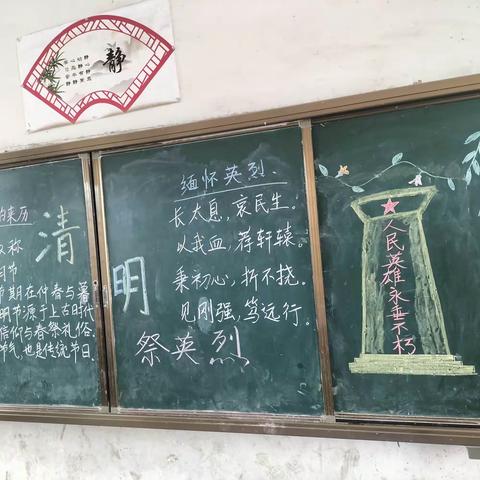 静
的来历
又称
节
节期在仲春与暮
明节源于上古时代
信仰与春祭礼俗,
节气,也是传统节日
清
明
祭英烈
缅怀英烈.
长太息,哀民生.
以我血,荐轩辕.
秉初心,折不挠.
见刚强,笃远行.
人民英雄永垂不朽